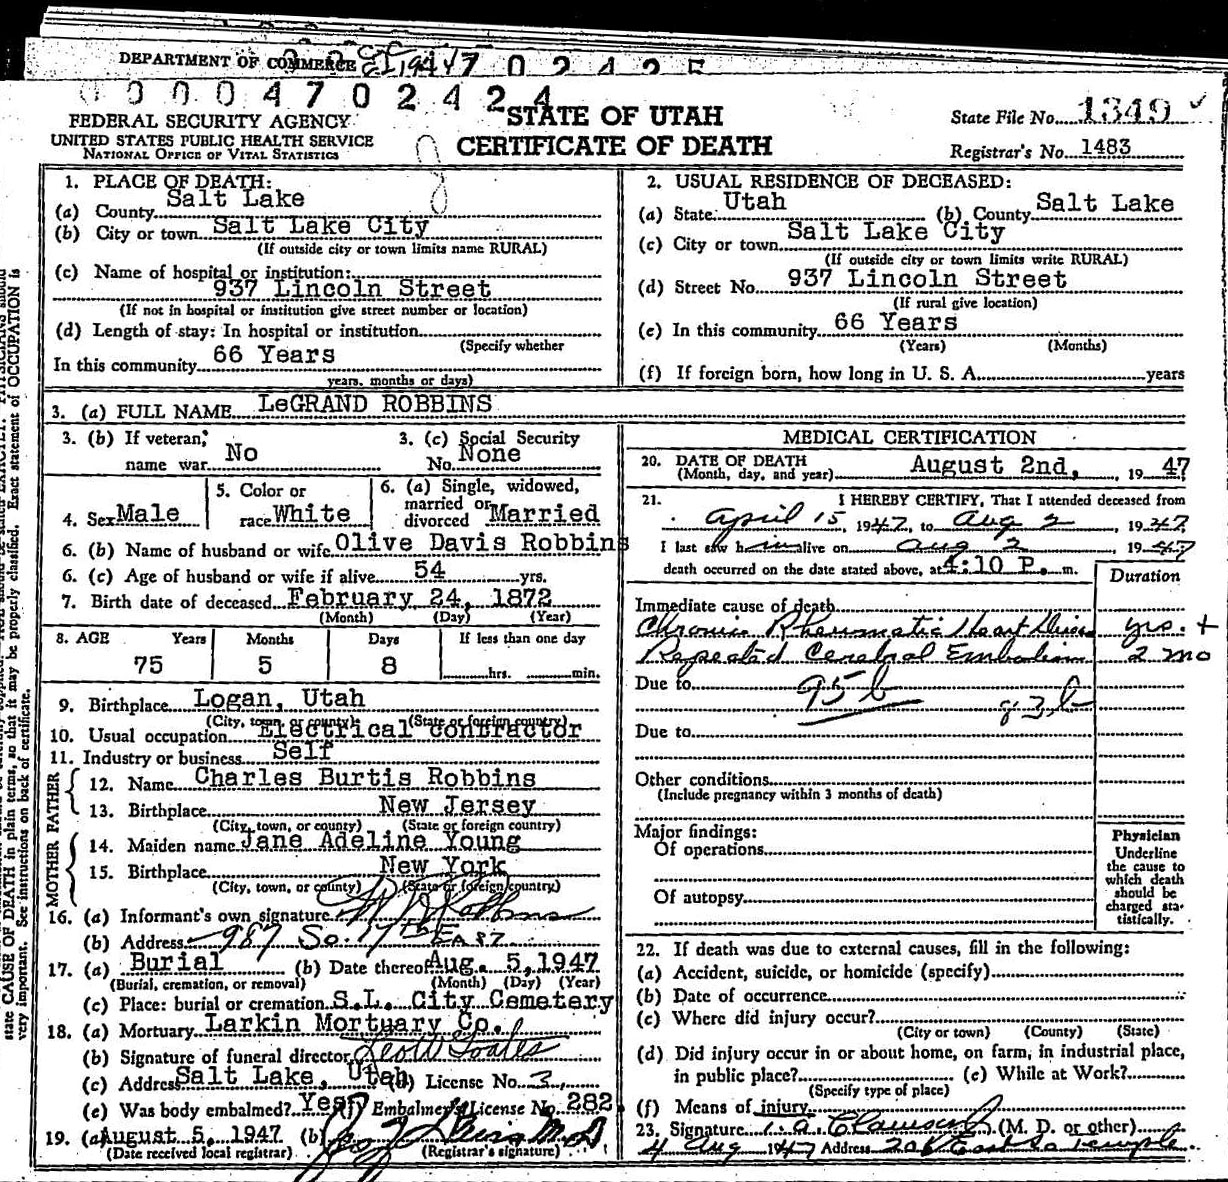 DEPARTMENT OF COMMERCE
0 0 0 0 4 7 0 2 4 2 4
FEDERAL SECURITY AGENCY
UNITED STATES PUBLIC HEALTH SERVICE
NATIONAL OFFICE OF VITAL STATISTICS
STATE OF UTAH
CERTIFICATE OF DEATH
State File No. 1349
Registrar's No. 1483
1. PLACE OF DEATH:
(a) County Salt Lake
(b) City or town Salt Lake City
(If outside city or town limits name RURAL)
(c) Name of hospital or institution:
937 Lincoln Street
(If not in hospital or institution give street number or location)
(d) Length of stay: In hospital or institution
(Specify whether
In this community 66 Years
years, months or days)
2. USUAL RESIDENCE OF DECEASED:
(a) State Utah (b) County Salt Lake
(c) City or town Salt Lake City
(If outside city or town limits write RURAL)
(d) Street No. 937 Lincoln Street
(If rural give location)
(e) In this community 66 Years
(Years) (Months)
(f) If foreign born, how long in U. S. A. years
3. (a) FULL NAME LeGRAND ROBBINS
3. (b) If veteran, name war No
3. (c) Social Security No. None
4. Sex Male
5. Color or race White
6. (a) Single, widowed, married or divorced Married
6. (b) Name of husband or wife Olive Davis Robbins
6. (c) Age of husband or wife if alive 54 yrs.
7. Birth date of deceased February 24, 1872
(Month) (Day) (Year)
8. AGE Years Months Days If less than one day
75 5 8 hrs. min.
9. Birthplace Logan, Utah
(City, town, or county) (State or foreign country)
10. Usual occupation Electrical Contractor
11. Industry or business Self
FATHER
12. Name Charles Burtis Robbins
13. Birthplace New Jersey
(City, town, or county) (State or foreign country)
MOTHER
14. Maiden name Jane Adeline Young
15. Birthplace New York
(City, town, or county) (State or foreign country)
16. (a) Informant's own signature Robbins
(b) Address 987 So. 17th East
17. (a) Burial (b) Date thereof Aug. 5, 1947
(Burial, cremation, or removal) (Month) (Day) (Year)
(c) Place: burial or cremation S.L. City Cemetery
18. (a) Mortuary Larkin Mortuary Co.
(b) Signature of funeral director
(c) Address Salt Lake, Utah (d) License No. 3
(e) Was body embalmed? Yes (f) Embalmer's License No. 282
19. (a) August 5, 1947 (b)
(Date received local registrar) (Registrar's signature)
MEDICAL CERTIFICATION
20. DATE OF DEATH August 2nd, 1947
(Month, day, and year)
21. I HEREBY CERTIFY, That I attended deceased from
April 15, 1947, to Aug 2, 1947
I last saw him alive on Aug 2, 1947
death occurred on the date stated above, at 4:10 P. m.
Duration
Immediate cause of death
Chronic Rheumatic Heart Disease yrs. +
Repeated Cerebral Embolism 2 mo
Due to 95b 83b
Due to
Other conditions
(Include pregnancy within 3 months of death)
Major findings:
Of operations
Of autopsy
Physician
Underline
the cause to
which death
should be
charged sta-
tistically.
22. If death was due to external causes, fill in the following:
(a) Accident, suicide, or homicide (specify)
(b) Date of occurrence
(c) Where did injury occur?
(City or town) (County) (State)
(d) Did injury occur in or about home, on farm, in industrial place,
in public place? (e) While at Work?
(Specify type of place)
(f) Means of injury
23. Signature Clawson (M. D. or other)
4 Aug 1947 Address 206 East So Temple
state CAUSE OF DEATH in plain terms, so that it may be properly classified. Exact statement of OCCUPATION is
very important. See instructions on back of certificate.